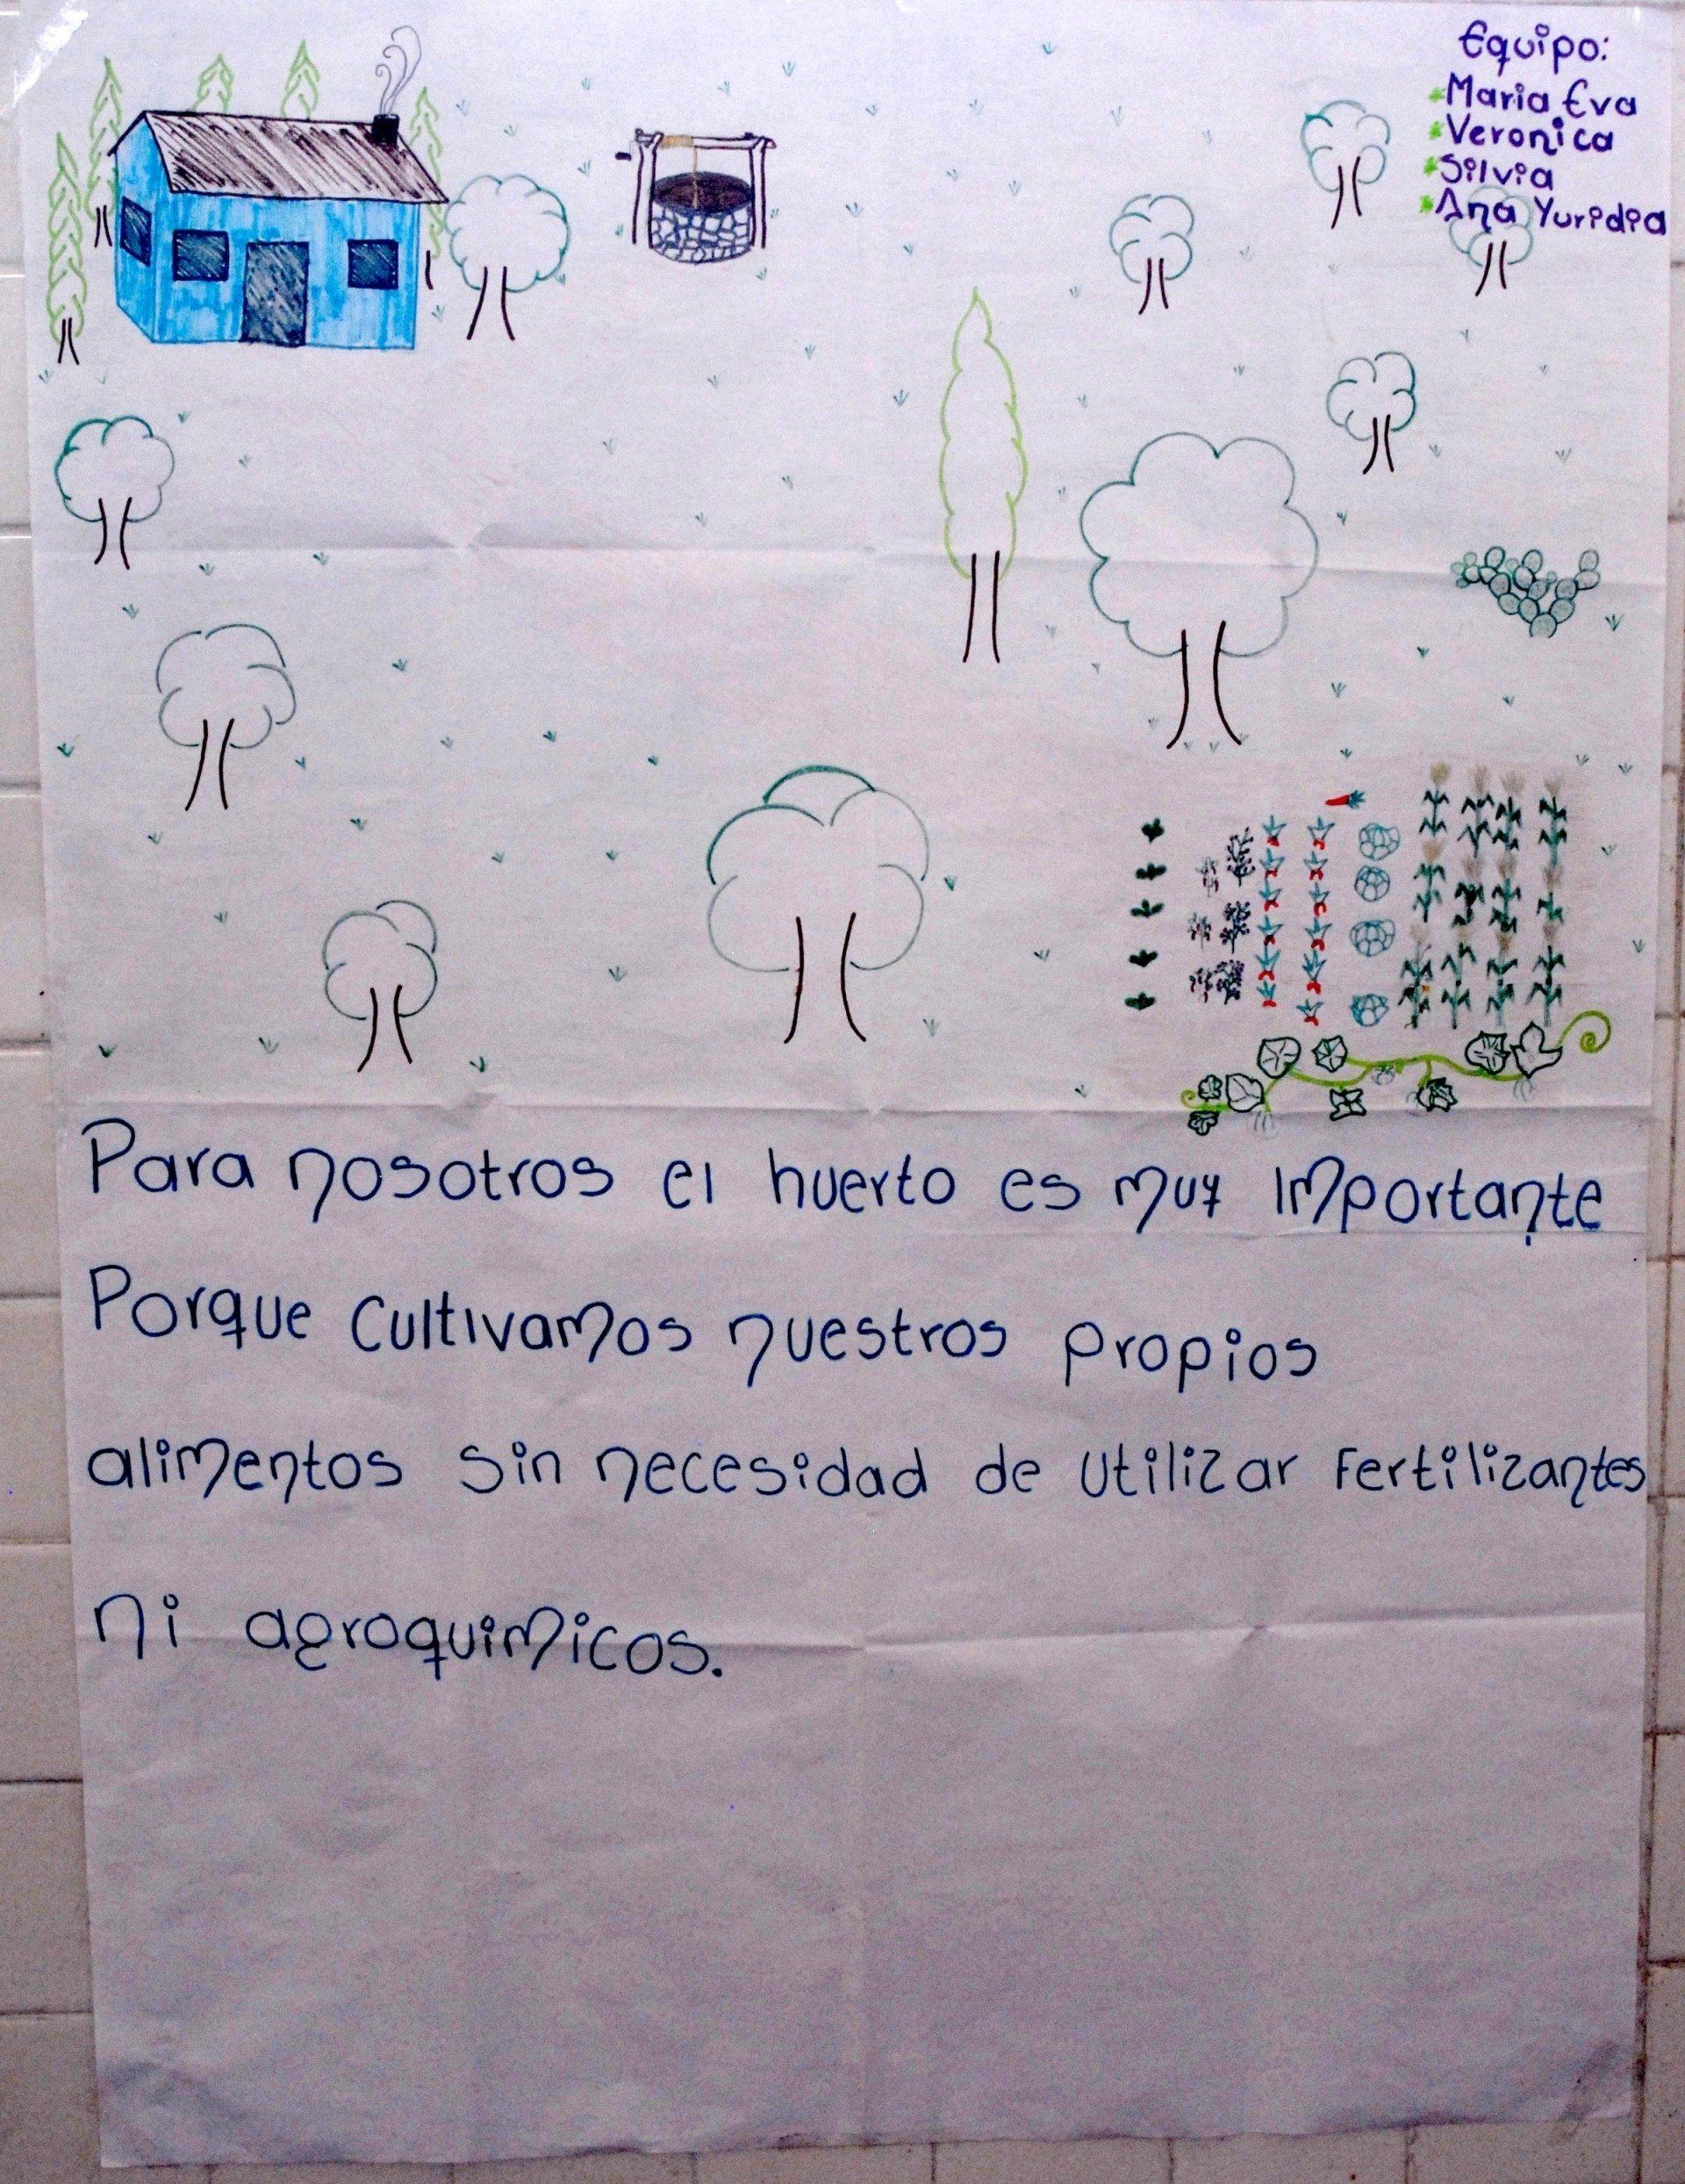 Equipo:
Maria Eva
Veronica
Silvia
Ana Yuridia
Para nosotros el huerto es muy importante
Porque cultivamos nuestros propios
alimentos sin necesidad de utilizar fertilizantes
ni agroquimicos.